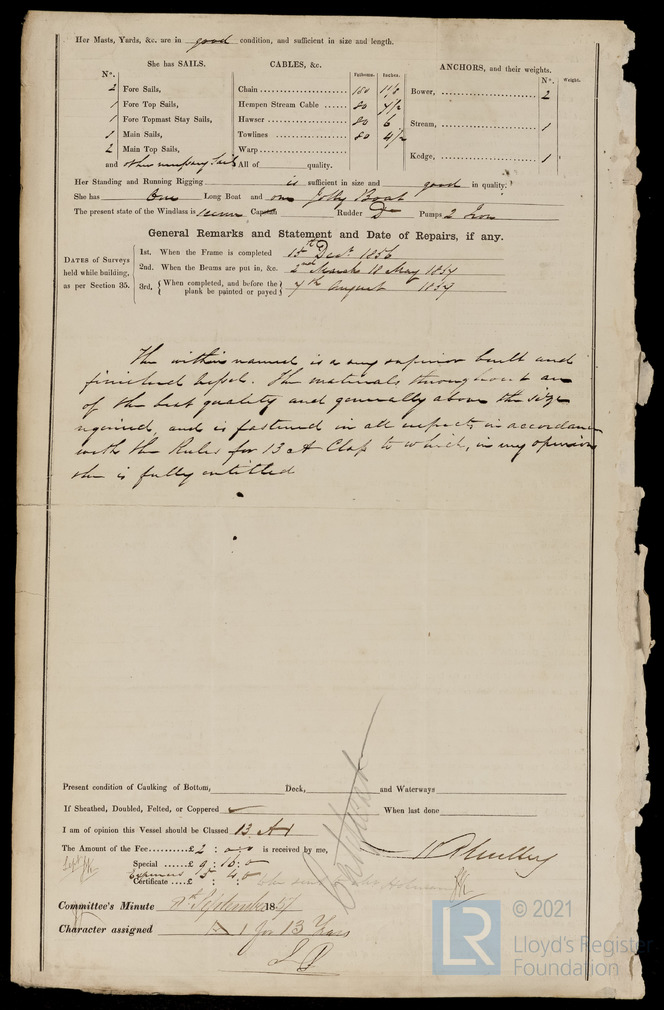 Her Masts, Yards, &c. are in good condition, and sufficient in size and length.
She has SAILS.
CABLES, &c.
ANCHORS, and their weights.
No.
Fathoms. Inches.
No. Weight.
2 Fore Sails,
Chain 100 1 1/8
Bower, 2
1 Fore Top Sails,
Hempen Stream Cable 80 7 1/2
1 Fore Topmast Stay Sails,
Hawser 80 6
Stream, 1
1 Main Sails,
Towlines 80 4 1/2
2 Main Top Sails,
Warp
Kedge, 1
and other necessary Sails
All of quality.
Her Standing and Running Rigging is sufficient in size and good in quality.
She has One Long Boat and one Jolly Boat
The present state of the Windlass is Capstan Rudder Do Pumps 2 Iron
General Remarks and Statement and Date of Repairs, if any.
DATES of Surveys held while building, as per Section 35.
1st. When the Frame is completed 15th Decr 1856
2nd. When the Beams are put in, &c. 2nd March 18 May 1857
3rd, { When completed, and before the plank be painted or payed } 7th August 1857
The within named is a very superior built and
finished vessel. The materials throughout are
of the best quality and generally above the size
required, and is fastened in all respects in accordance
with the Rules for 13 A Class to which, in my opinion
she is fully entitled
Present condition of Caulking of Bottom, Deck, and Waterways
If Sheathed, Doubled, Felted, or Coppered When last done
I am of opinion this Vessel should be Classed 13 A1
The Amount of the Fee £2 : 0 : 0 is received by me,
Special £9 : 15 : 0
Expenses 15 : 4 0
Certificate £ :
Committee's Minute 8th September 1857
Character assigned A 1 for 13 Years
© 2021
LR
Lloyd's Register
Foundation